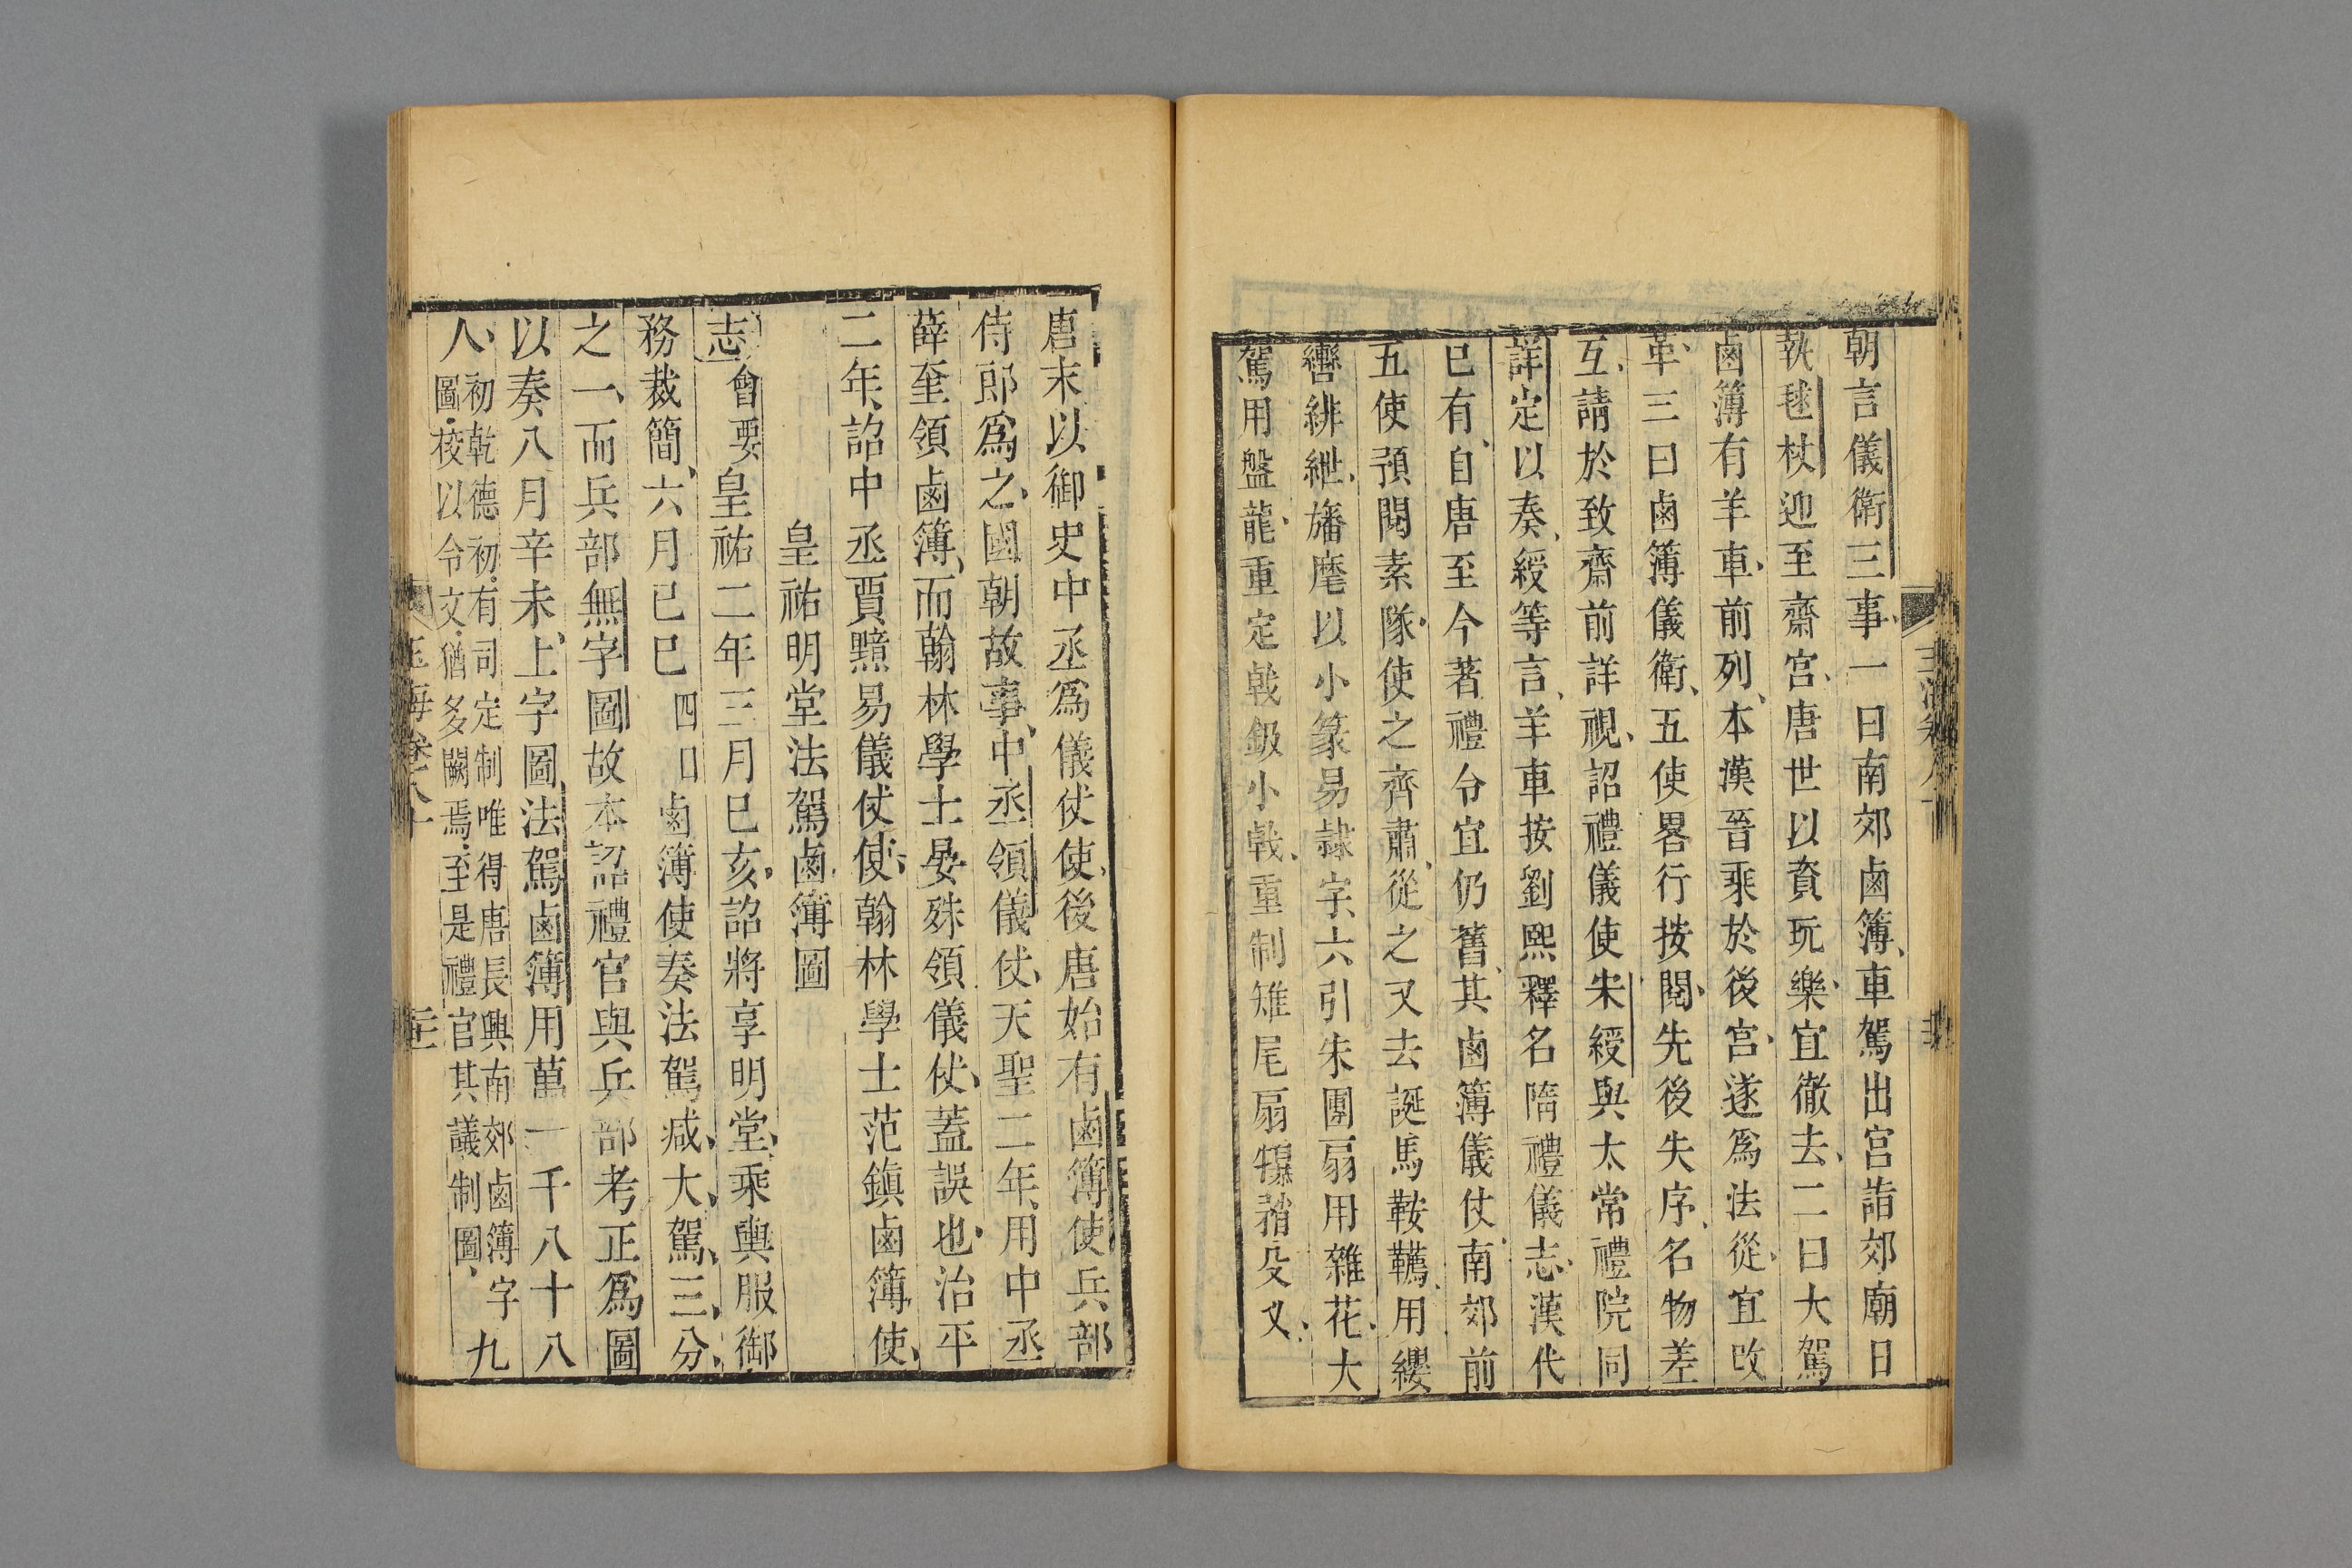 朝言儀衛三事一曰南郊鹵簿車駕出宮詣郊廟日
執毬杖迎至齋宮唐世以資玩樂宜徹去二曰大駕
鹵簿有羊車前列本漢晉乘於後宮遂爲法從宜改
革三曰鹵簿儀衛五使畧行按閱先後失序名物差
互請於致齋前詳視詔禮儀使宋綬與太常禮院同
詳定以奏綬等言羊車按劉熙釋名隋禮儀志漢代
已有自唐至今著禮令宜仍舊其鹵簿儀仗南郊前
五使預閱素隊使之齊肅從之又去誕馬鞍韉用纓
轡緋紲旛麾以小篆易隷字六引朱團扇用雜花大
駕用盤龍重定戟鈒小戟重制雉尾扇犦矟殳叉
唐末以御史中丞爲儀仗使後唐始有鹵簿使兵部
侍郎爲之國朝故事中丞領儀仗天聖二年用中丞
薛奎領鹵簿而翰林學士晏殊領儀仗蓋誤也治平
二年詔中丞賈黯易儀仗使翰林學士范鎮鹵簿使
皇祐明堂法駕鹵簿圖
志會要皇祐二年三月巳亥詔將享明堂乘輿服御
務裁簡六月己巳四日鹵簿使奏法駕减大駕三分
之一而兵部無字圖故本詔禮官與兵部考正爲圖
以奏八月辛未上字圖法駕鹵簿用萬一千八十八
人初乾德初有司定制唯得唐長興南郊鹵簿字
圖校以令文猶多闕焉至是禮官其議制圖九
玉海卷八十